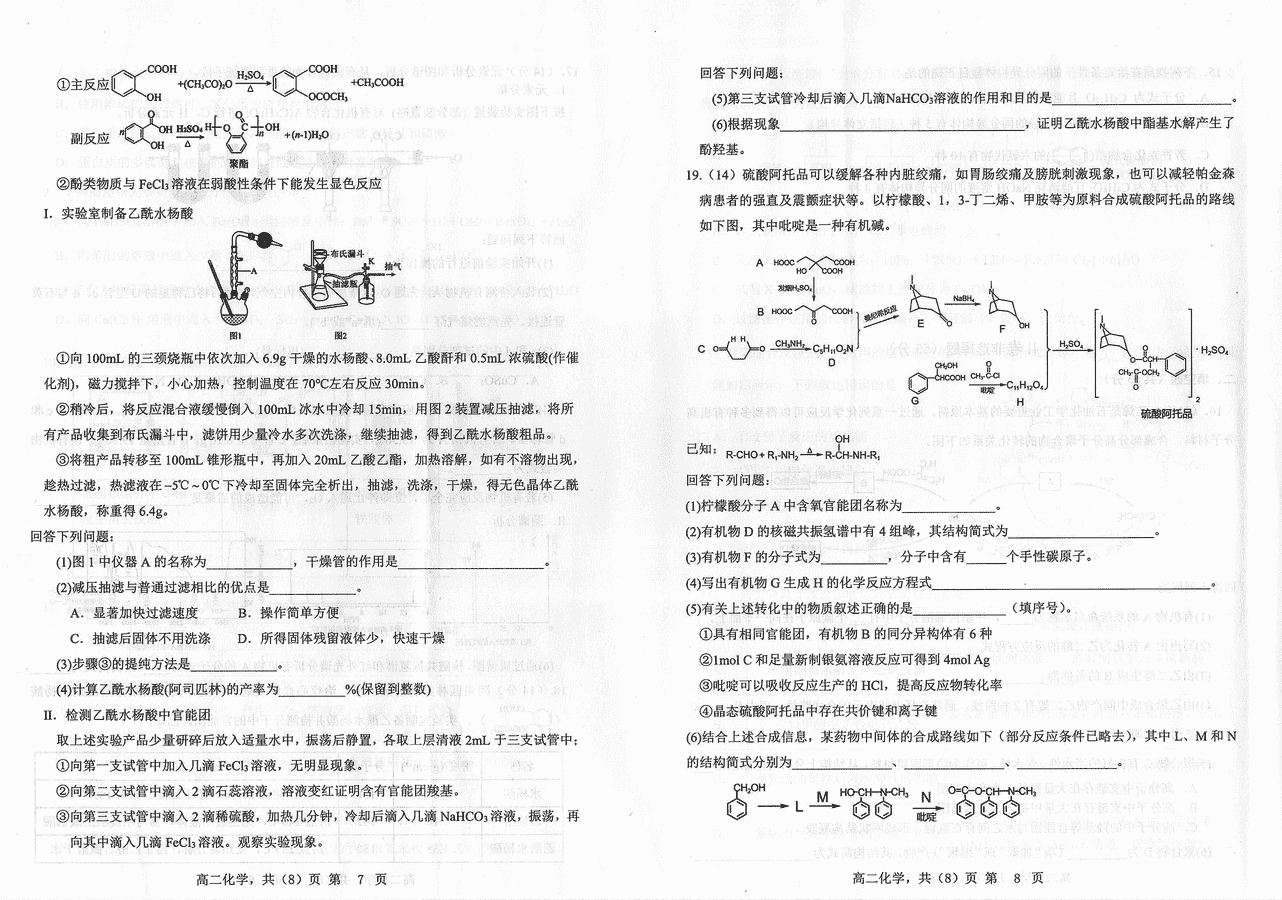 ①主反应 COOH OH +(CH₃CO)₂O H₂SO₄ △ COOH OCOCH₃ +CH₃COOH
副反应 n COOH OH H₂SO₄ △ H O C O n OH +(n-1)H₂O
聚酯
②酚类物质与 FeCl₃ 溶液在弱酸性条件下能发生显色反应
I．实验室制备乙酰水杨酸
A 布氏漏斗 K 抽气 抽滤瓶
图1 图2
①向 100mL 的三颈烧瓶中依次加入 6.9g 干燥的水杨酸、8.0mL 乙酸酐和 0.5mL 浓硫酸(作催
化剂)，磁力搅拌下，小心加热，控制温度在 70℃左右反应 30min。
②稍冷后，将反应混合液缓慢倒入 100mL 冰水中冷却 15min，用图 2 装置减压抽滤，将所
有产品收集到布氏漏斗中，滤饼用少量冷水多次洗涤，继续抽滤，得到乙酰水杨酸粗品。
③将粗产品转移至 100mL 锥形瓶中，再加入 20mL 乙酸乙酯，加热溶解，如有不溶物出现，
趁热过滤，热滤液在 −5℃～0℃下冷却至固体完全析出，抽滤，洗涤，干燥，得无色晶体乙酰
水杨酸，称重得 6.4g。
回答下列问题：
(1)图 1 中仪器 A 的名称为____________，干燥管的作用是____________________。
(2)减压抽滤与普通过滤相比的优点是____________。
A．显著加快过滤速度 B．操作简单方便
C．抽滤后固体不用洗涤 D．所得固体残留液体少，快速干燥
(3)步骤③的提纯方法是____________。
(4)计算乙酰水杨酸(阿司匹林)的产率为_________%(保留到整数)
II．检测乙酰水杨酸中官能团
取上述实验产品少量研碎后放入适量水中，振荡后静置，各取上层清液 2mL 于三支试管中；
①向第一支试管中加入几滴 FeCl₃ 溶液，无明显现象。
②向第二支试管中滴入 2 滴石蕊溶液，溶液变红证明含有官能团羧基。
③向第三支试管中滴入 2 滴稀硫酸，加热几分钟，冷却后滴入几滴 NaHCO₃ 溶液，振荡，再
向其中滴入几滴 FeCl₃ 溶液。观察实验现象。
高二化学，共（8）页 第 7 页
回答下列问题：
(5)第三支试管冷却后滴入几滴NaHCO₃溶液的作用和目的是________________________。
(6)根据现象________________________________，证明乙酰水杨酸中酯基水解产生了
酚羟基。
19.（14）硫酸阿托品可以缓解各种内脏绞痛，如胃肠绞痛及膀胱刺激现象，也可以减轻帕金森
病患者的强直及震颤症状等。以柠檬酸、1，3-丁二烯、甲胺等为原料合成硫酸阿托品的路线
如下图，其中吡啶是一种有机碱。
A HOOC COOH HO COOH
发烟H₂SO₄
B HOOC COOH O
曼尼希反应 N O E NaBH₄ N OH F
C O H H O CH₃NH₂ C₅H₁₁O₂N D
CH₂OH COOH G CH₃-C-Cl O 吡啶 C₁₁H₁₂O₄ H
H₂SO₄ N O O CH₂OH 2 · H₂SO₄
硫酸阿托品
已知： R-CHO + R₁-NH₂ △ R-CH-NH-R₁ OH
回答下列问题：
(1)柠檬酸分子 A 中含氧官能团名称为_____________。
(2)有机物 D 的核磁共振氢谱中有 4 组峰，其结构简式为____________________。
(3)有机物 F 的分子式为_________，分子中含有_____个手性碳原子。
(4)写出有机物 G 生成 H 的化学反应方程式____________________________________。
(5)有关上述转化中的物质叙述正确的是____________（填序号）。
①具有相同官能团，有机物 B 的同分异构体有 6 种
②1mol C 和足量新制银氨溶液反应可得到 4mol Ag
③吡啶可以吸收反应生产的 HCl，提高反应物转化率
④晶态硫酸阿托品中存在共价键和离子键
(6)结合上述合成信息，某药物中间体的合成路线如下（部分反应条件已略去），其中 L、M 和 N
的结构简式分别为_____________、_____________、_____________。
CH₂OH L M HO-CH N-CH₃ N 吡啶 O=C-O-CH N-CH₃
高二化学，共（8）页 第 8 页